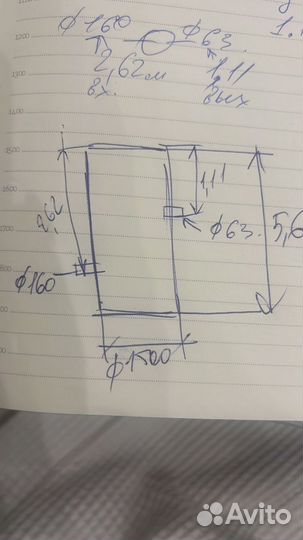 ф160 ф63.
2,62м 1,11
вх. вых
1.
1200
1300
1500
1,11
2,62
ф63. 5,6
ф160
ф1500
Avito